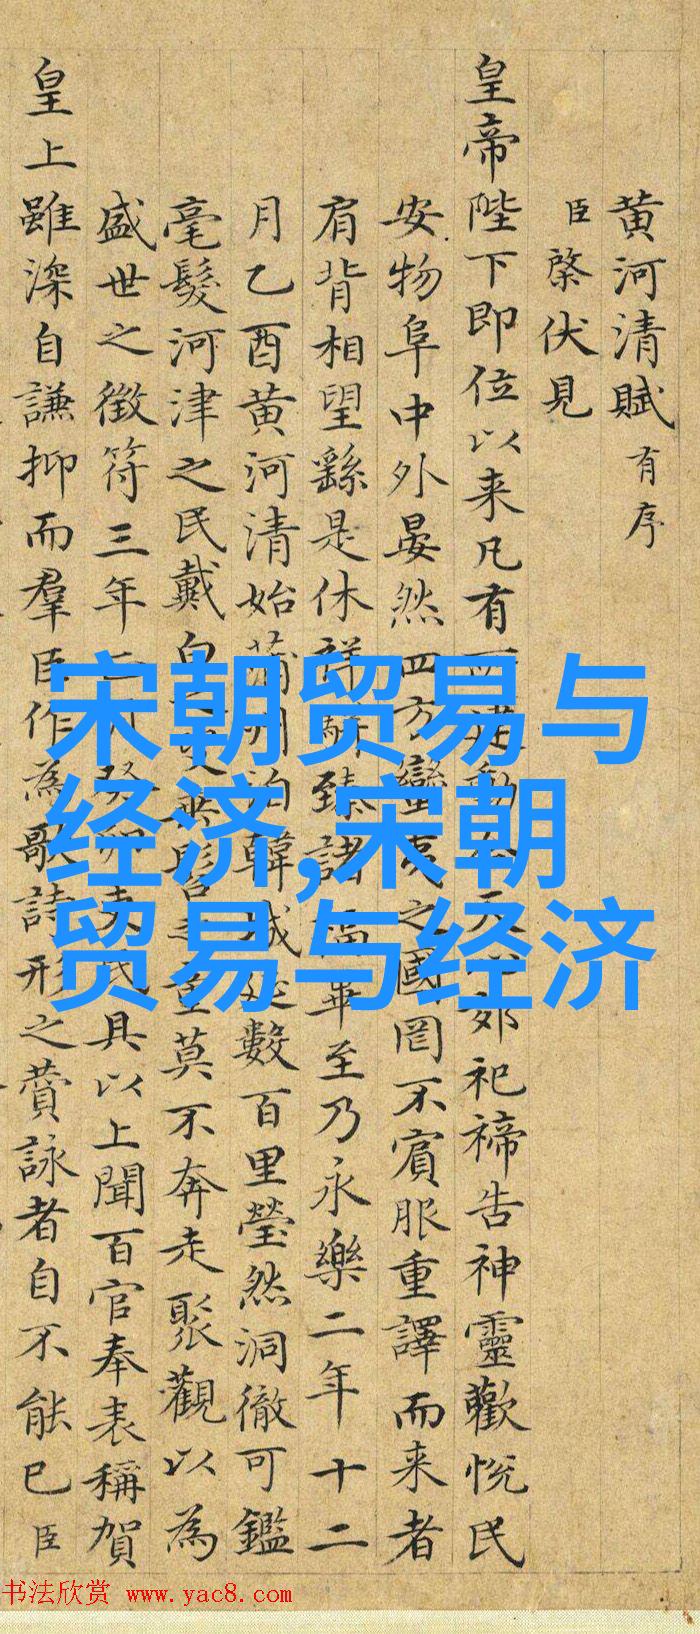 黄河清賦有序
臣棨伏見
皇帝陛下即位以来凡有天郊祀禘告神靈歡悦民
安物阜中外晏然四方蠻夷之國罔不賓服重譯而来者
肩背相望繇是休祥諸福畢至乃永樂二年十二
月乙酉黄河清始蒲州泊韓城延數百里瑩然洞徹可鑑
毫髮河津之民戴白垂髫重莫不奔走聚觀以為
盛世之徵符三年具以上聞百官奉表稱賀
皇上雖深自謙抑而羣臣作為歌詩形之賛詠者自不能已臣
宋朝贸易与
经济,宋朝
贸易与经济
书法欣赏 www.yac8.com